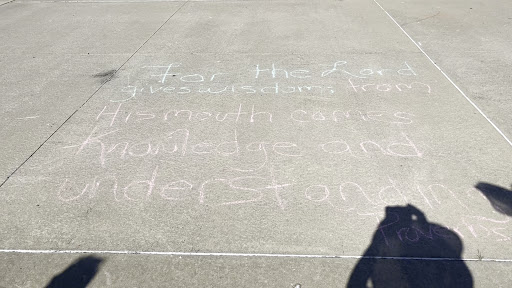 For the Lord
gives wisdom; from
His mouth comes
Knowledge and
understandin
Proverbs